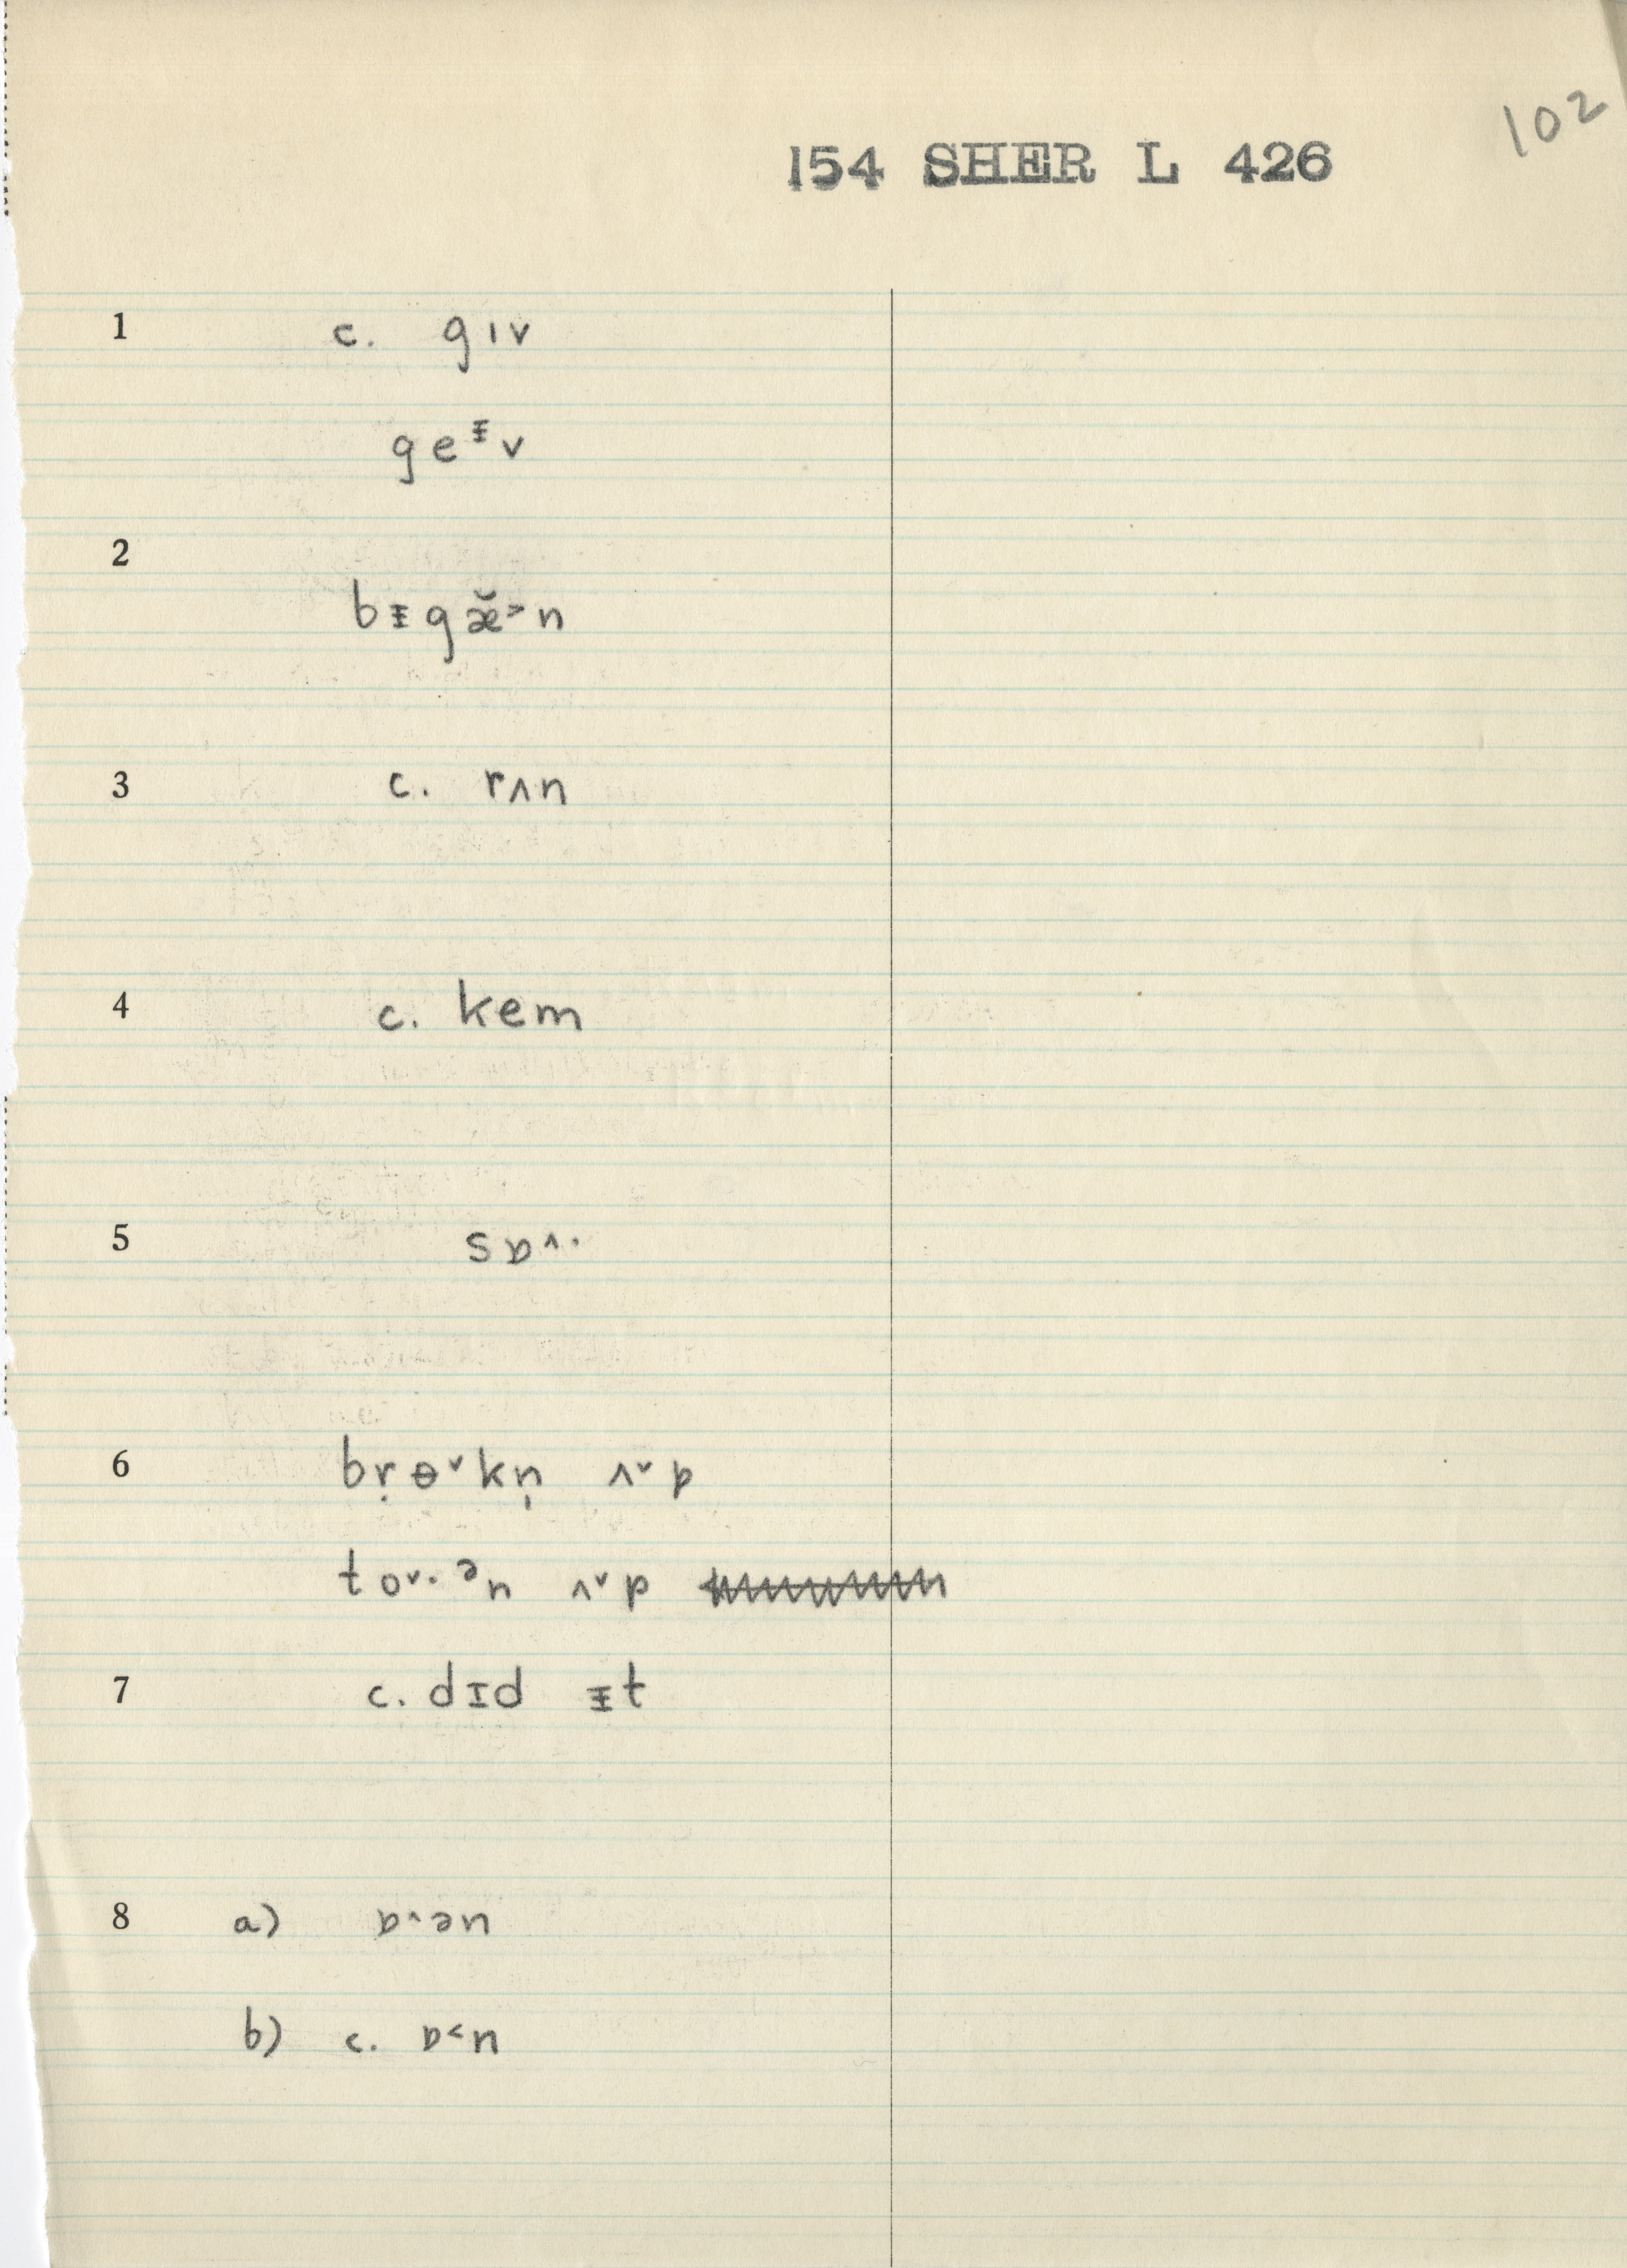 102
154 SHER L 426
1 c. gıv
geᵻv
2
bᵻgæ̆˃n
3 c. rʌn
4 c. kem
5 sɒ˄·
6 bṛɵ˅kn̩ ʌ˅p
to˅·ᵊn ʌ˅p
7 c. dɪd ᵻt
8 a) ɒ·ən
b) c. ɒ˂n